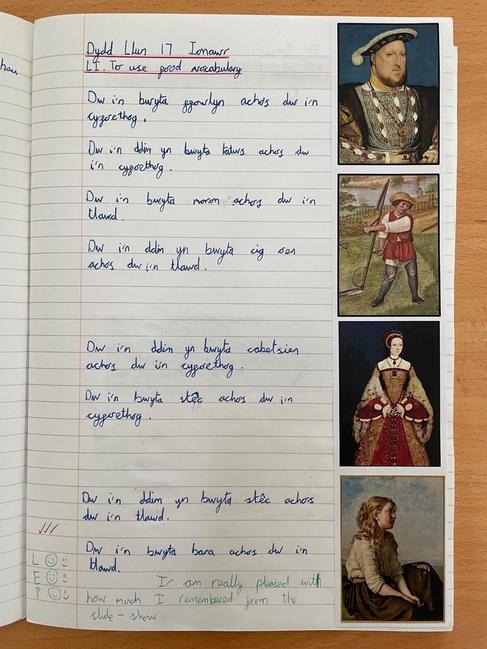 Dydd Llun 17 Ionawr
LI. To use good vocabulary
Dw i'n bwyta gwowlyn achos dw i'n
cyfoethog.
Dw i'n ddim yn bwyta tatws achos dw
i'n cyfoethog.
Dw i'n bwyta moron achos dw i'n
tlawd.
Dw i'n ddim yn bwyta cig oen
achos dw i'n tlawd.
Dw i'n ddim yn bwyta cabetsien
achos dw i'n cyfoethog.
Dw i'n bwyta stêc achos dw i'n
cyfoethog.
Dw i'n ddim yn bwyta stêc achos
dw i'n tlawd.
Dw i'n bwyta bara achos dw i'n
tlawd.
L
E
P
I am really pleased with
how much I remembered from the
slide-show.